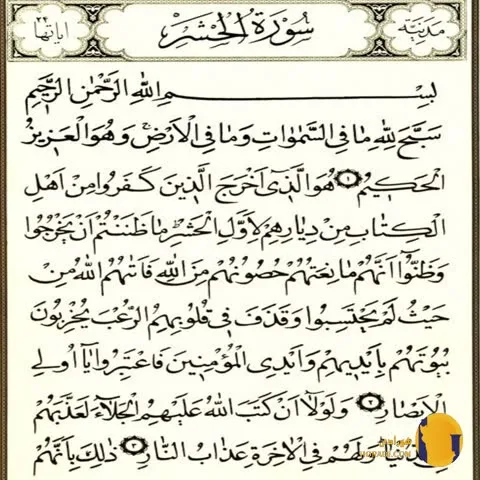 مدنیّة سُورَةُ الْحَشْرِ اٰیاتها ٢٤
بِسْمِ اللّٰهِ الرَّحْمٰنِ الرَّحٖيمِ
سَبَّحَ لِلّٰهِ مَا فِى السَّمٰوَاتِ وَمَا فِى الْاَرْضِۚ وَهُوَ الْعَزٖيزُ
الْحَكٖيمُ ١ هُوَ الَّذٖٓى اَخْرَجَ الَّذٖينَ كَفَرُوا مِنْ اَهْلِ
الْكِتَابِ مِنْ دِيَارِهِمْ لِاَوَّلِ الْحَشْرِؕ مَا ظَنَنْتُمْ اَنْ يَخْرُجُوا
وَظَنُّٓوا اَنَّهُمْ مَانِعَتُهُمْ حُصُونُهُمْ مِنَ اللّٰهِ فَاَتٰيهُمُ اللّٰهُ مِنْ
حَيْثُ لَمْ يَحْتَسِبُوا وَقَذَفَ فٖى قُلُوبِهِمُ الرُّعْبَ يُخْرِبُونَ
بُيُوتَهُمْ بِاَيْدٖيهِمْ وَاَيْدِى الْمُؤْمِنٖينَ فَاعْتَبِرُوا يَٓا اُولِى
الْاَبْصَارِ ٢ وَلَوْلَٓا اَنْ كَتَبَ اللّٰهُ عَلَيْهِمُ الْجَلَٓاءَ لَعَذَّبَهُمْ
وَلَهُمْ فِى الْاٰخِرَةِ عَذَابُ النَّارِ ٣ ذٰلِكَ بِاَنَّهُمْ